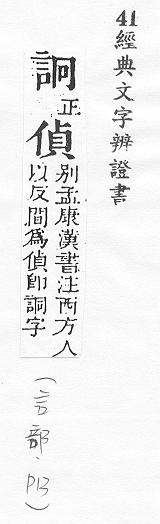 41經典文字辨證書
詗正
偵別孟康漢書注西方人
以反間為偵即詗字
(言部.P13)